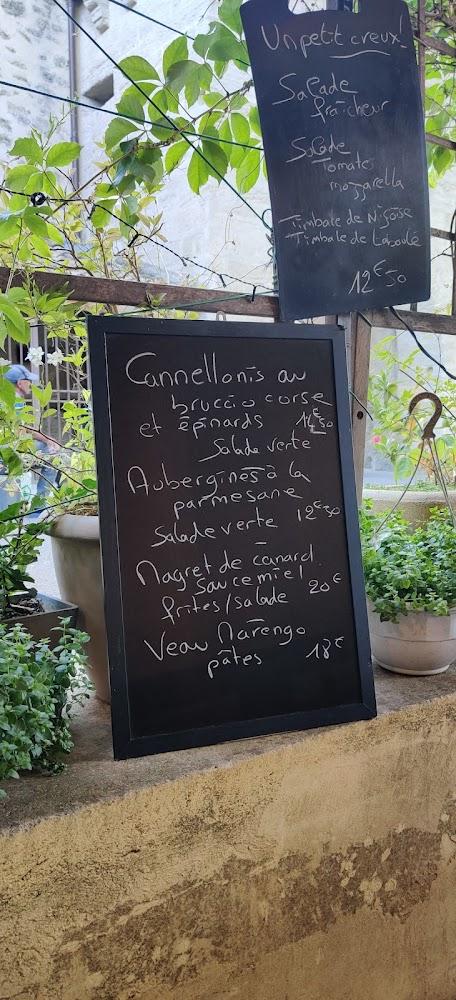 Un petit creux!
Salade
fraîcheur
Salade
Tomate
mozzarella
Timbale de Niçoise
Timbale de Taboulé
12€50
Cannellonis au
bruccio corse
et épinards 14€50
Salade verte
Aubergines à la
parmesane
Salade verte 12€50
Magret de canard
Sauce miel
frites/salade 20€
Veau Marengo
pâtes 18€